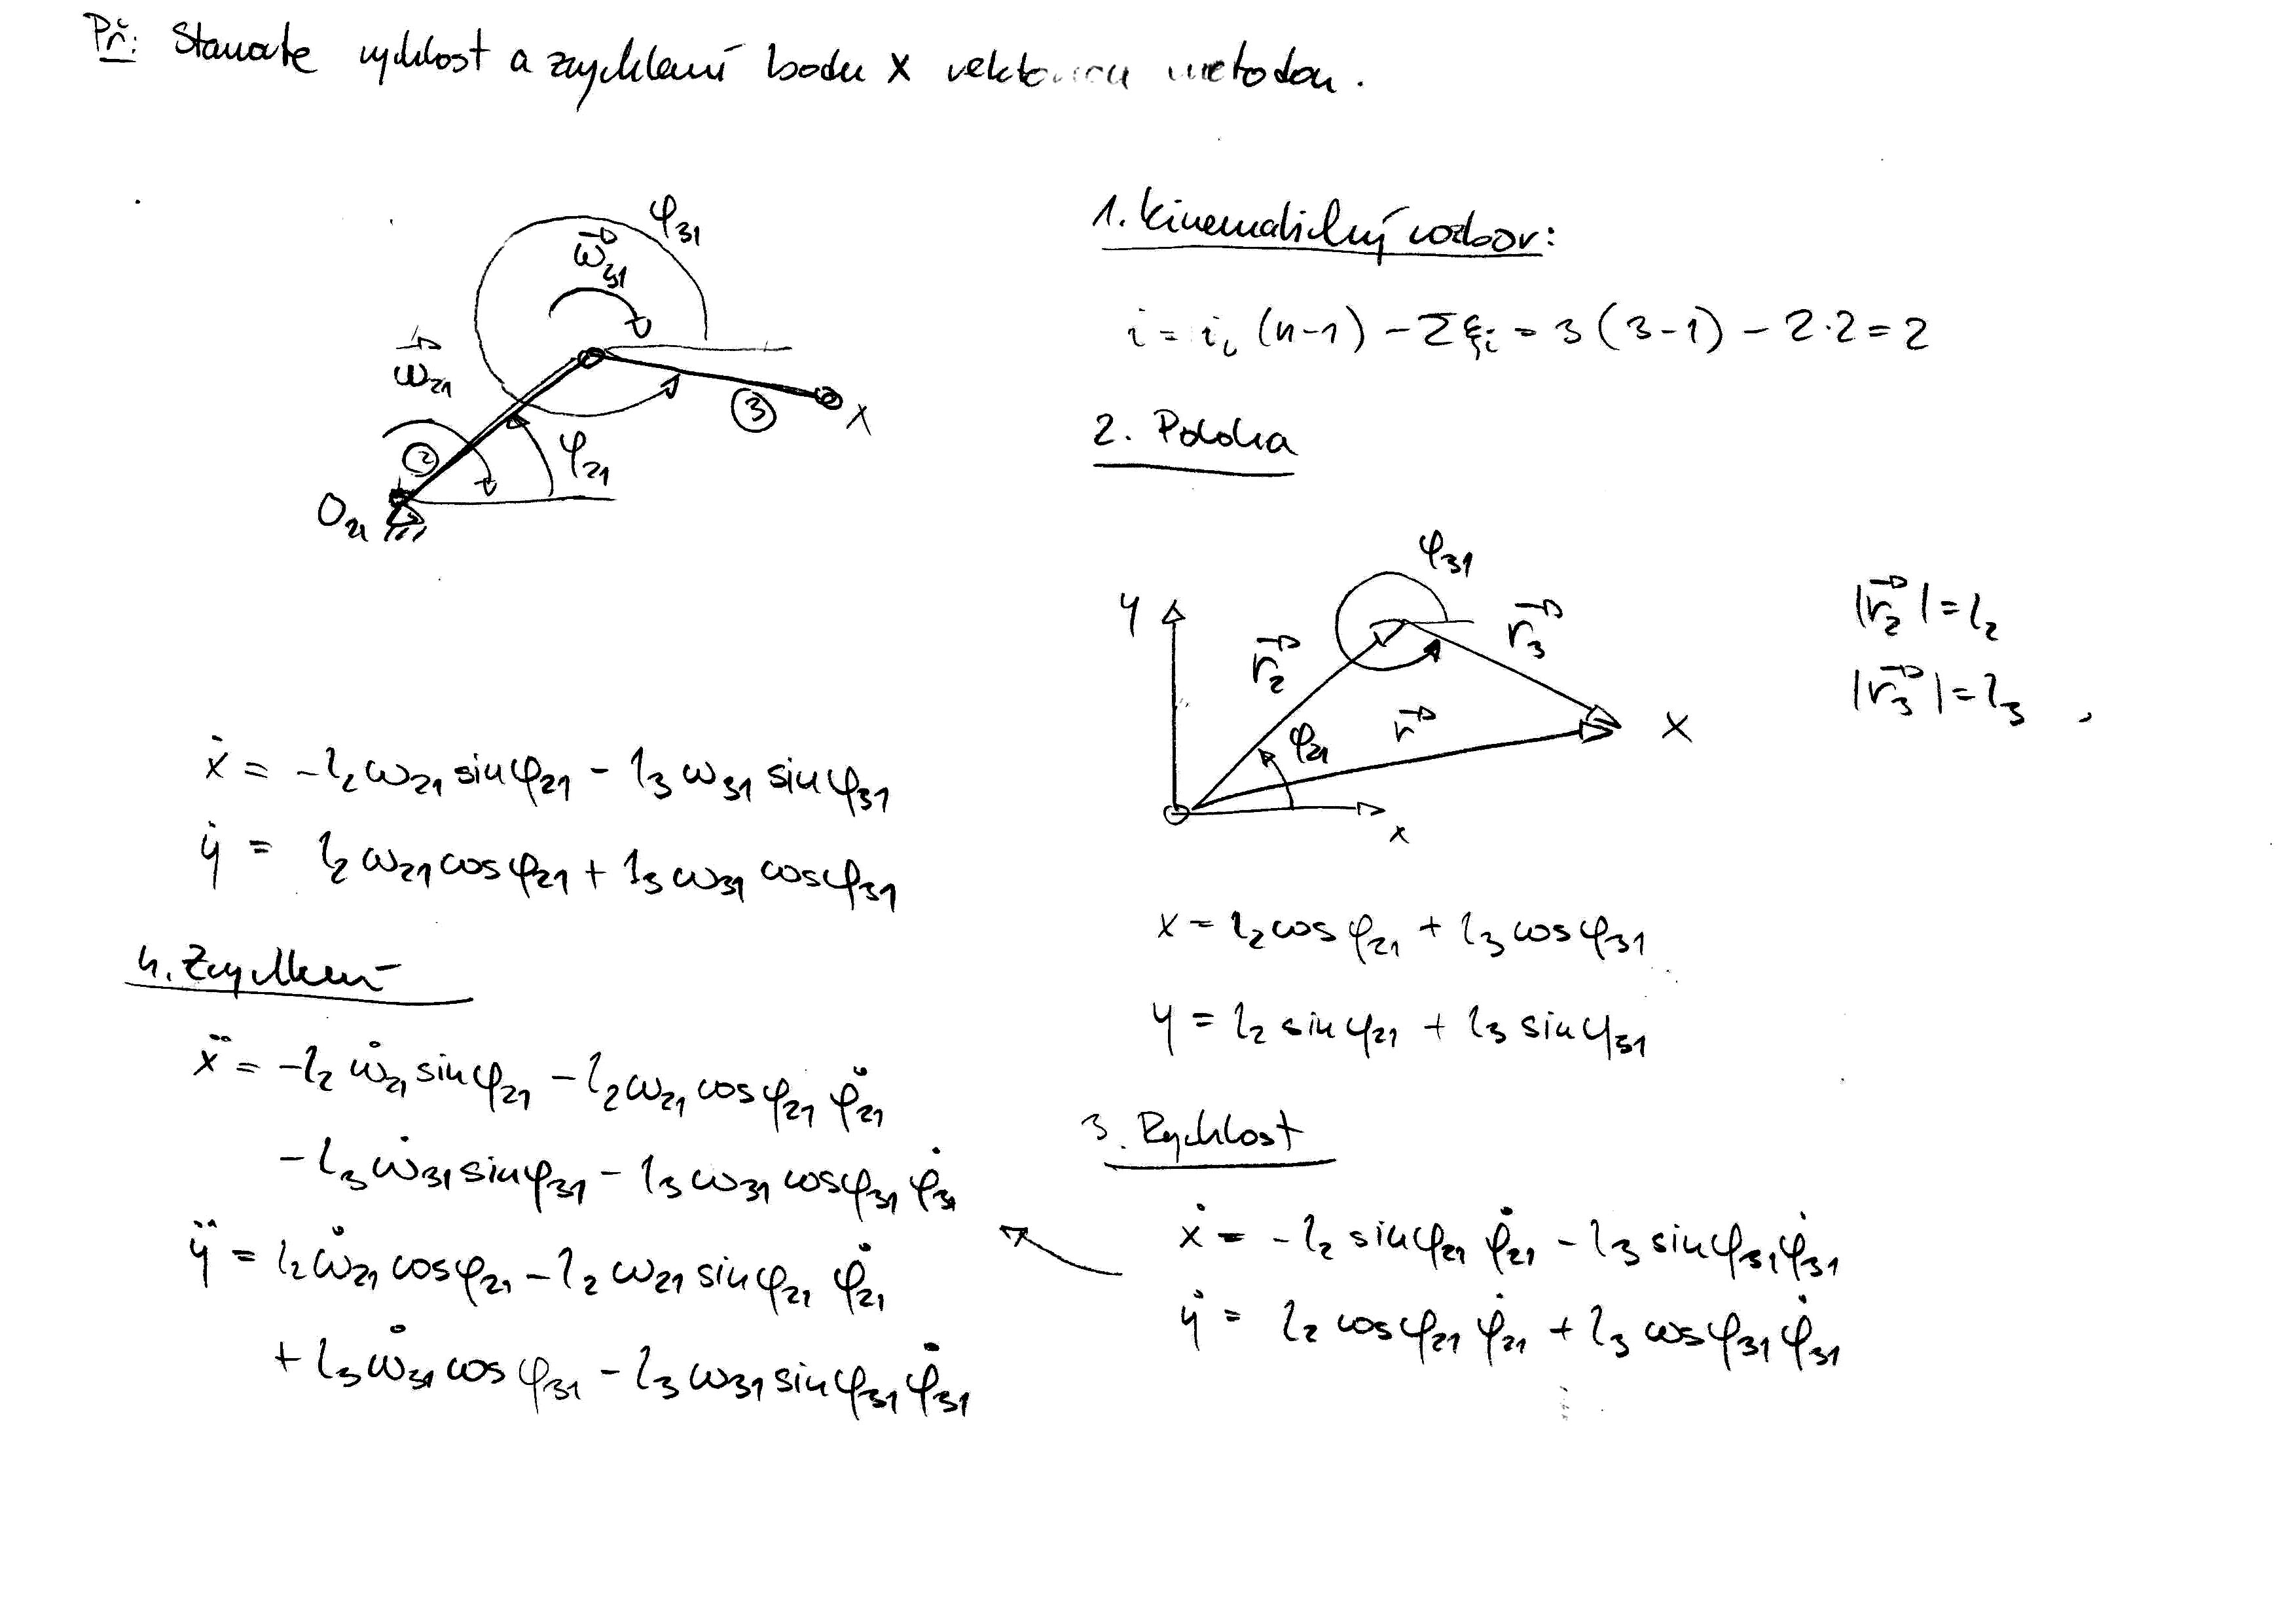 Př: Stanovte rychlost a zrychlení bodu X vektorovou metodou.
φ31
ω⃗31
ω⃗21
3
X
2
φ21
O21
1. Kinematický rozbor:
i = iᵥ (n-1) - Σξi = 3 (3-1) - 2·2 = 2
2. Poloha
φ31
y
r⃗2
r⃗3
φ21
r⃗
X
x
|r⃗2| = l2
|r⃗3| = l3
x = l2 cos φ21 + l3 cos φ31
y = l2 sin φ21 + l3 sin φ31
3. Rychlost
ẋ = - l2 sin φ21 φ̇21 - l3 sin φ31 φ̇31
ẏ = l2 cos φ21 φ̇21 + l3 cos φ31 φ̇31
ẋ = - l2 ω21 sin φ21 - l3 ω31 sin φ31
ẏ = l2 ω21 cos φ21 + l3 ω31 cos φ31
4. Zrychlení
ẍ = - l2 ω̇21 sin φ21 - l2 ω21 cos φ21 φ̇21
- l3 ω̇31 sin φ31 - l3 ω31 cos φ31 φ̇31
ÿ = l2 ω̇21 cos φ21 - l2 ω21 sin φ21 φ̇21
+ l3 ω̇31 cos φ31 - l3 ω31 sin φ31 φ̇31